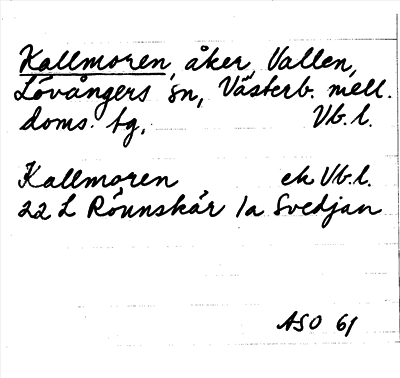 Kallmoren, åker, Vallen,
Lövångers sn, Västerb. mell.
doms. tg, Vb. l.
Kallmoren ek Vb.l.
22 L Rönnskär 1a Svedjan
ASO 61